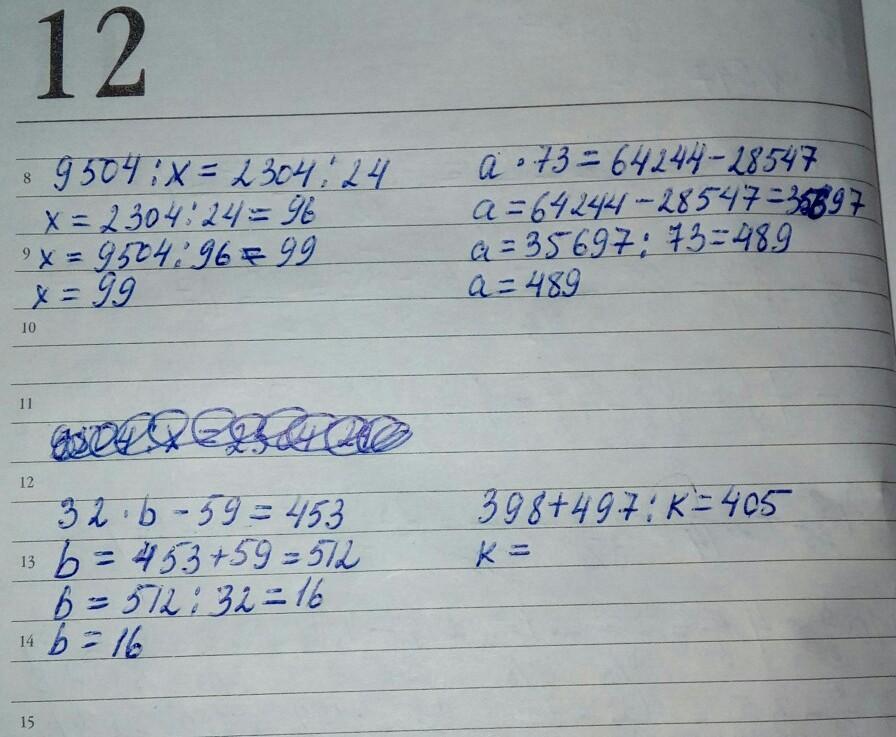 12
8 9504 : x = 2304 : 24
x = 2304 : 24 = 96
9 x = 9504 : 96 = 99
x = 99
a · 73 = 64244 - 28547
a = 64244 - 28547 = 35697
a = 35697 : 73 = 489
a = 489
10
11
12
32 · b - 59 = 453
13 b = 453 + 59 = 512
b = 512 : 32 = 16
14 b = 16
398 + 497 : k = 405
k =
15